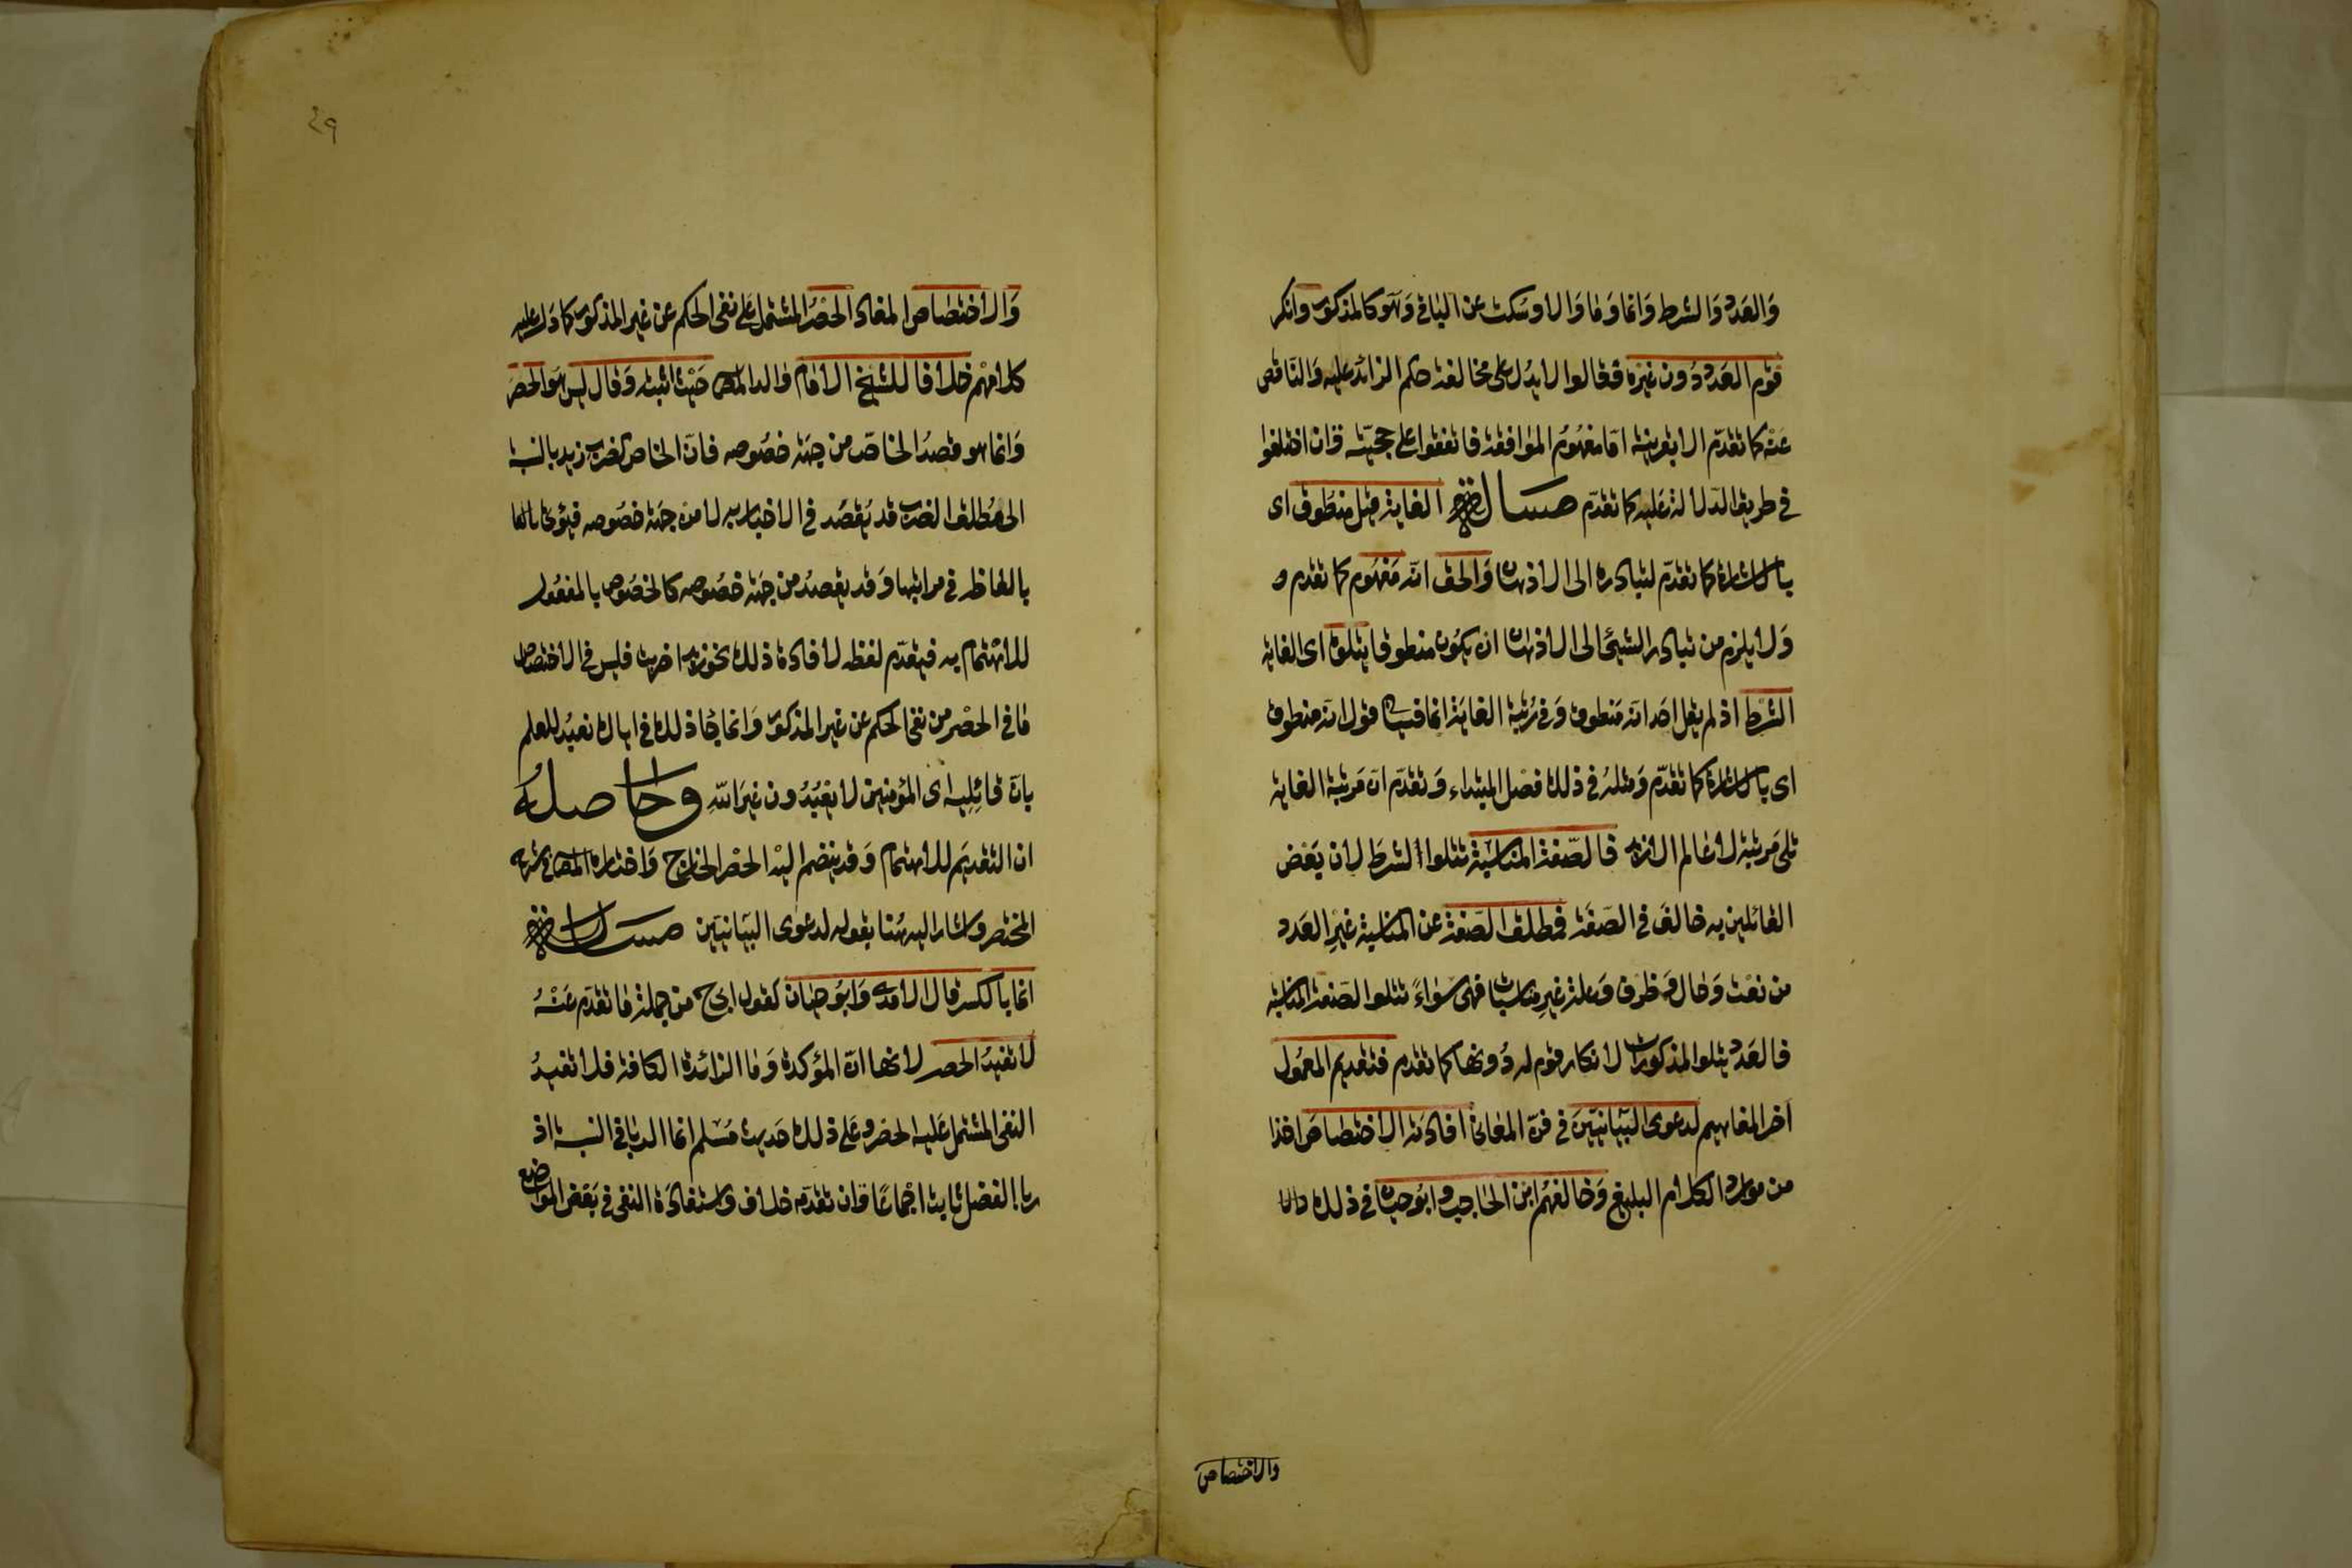 والعدد والشرط وانما وما والا وسكت عن الباقي وهو كالمذكور وانكر
قوم العدد دون غيره فقالوا لا يدل على مخالفة حكم الزائد عليه والناقص
عنه كما تقدم الا بقرينة اما مفهوم الموافقة فاتفقوا على حجيته وان اختلفوا
في طريق الدلالة عليه كما تقدم مسالة الغاية قيل منطوق اى
بالاشارة كما تقدم لتبادره الى الاذهان والحق انه مفهوم كما تقدم و
ولا يلزم من تبادر الشيئ الى الاذهان ان يكون منطوقا يتلوه اى الغاية
الشرط اذ لم يقل احد انه منطوق وفي رتبة الغاية انما فسياتى قول انه منطوق
اى بالاشارة كما تقدم ومثله في ذلك فصل المبتداء وتقدم ان مرتبة الغاية
تلى مرتبة لا عالم الا زيد فالصفة المناسبة تتلوا الشرط لان بعض
القائلين به خالف في الصفة فمطلق الصفة عن المناسبة غير العدد
من نعت وحال وظرف وعلة غير مناسبات فهى سواء تتلوا الصفة المناسبة
فالعدد يتلوا المذكورات لانكار قوم له دونها كما تقدم فتقديم المعمول
اخر المفاهيم لدعوى البيانيين في فن المعانى افادته الاختصاص اخذا
من موارد الكلام البليغ وخالفهم ابن الحاجب وابو حيان في ذلك
والاختصاص
٤٩
والاختصاص المفاد الحصر المشتمل على نفى الحكم عن غير المذكور كما دل عليه
كلامهم خلافا للشيخ الامام والد المص حيث اثبته وقال ليس هو الحصر
وانما هو قصد الخاص من جهة خصوصه فان الخاص كضرب زيد بالنسبة
الى مطلق الضرب قد يقصد في الاخبار به لا من جهة خصوصه فيؤتى
بالفاظه في مراتبها وقد يقصد من جهة خصوصه كالخصوص بالمفعول
للاهتمام به فيقدم لفظه لافادة ذلك نحو زيدا ضربت فليس في الاختصاص
ما في الحصر من نفى الحكم عن غير المذكور وانما جا ذلك في اياك نعبد للعلم
بان قائليه اى المؤمنين لا يعبدون غير الله وحاصله
ان التقديم للاهتمام وقد ينضم اليه الحصر لخارج واختاره المص في شرح
المختصر واشار اليه هنا بقوله لدعوى البيانيين مسالة
انما بالكسر قال الامدى وابو حيان كقول ابى ح من جملة ما تقدم عنه
لا تفيد الحصر لانها ان المؤكدة وما الزائدة الكافة فلا تفيد
النفى المشتمل عليه الحصر وعلى ذلك حديث مسلم انما الربا في النسيئة اذ
ربا الفضل ثابت اجماعا وان تقدمه خلاف واستفادة النفى في بعض المواضع